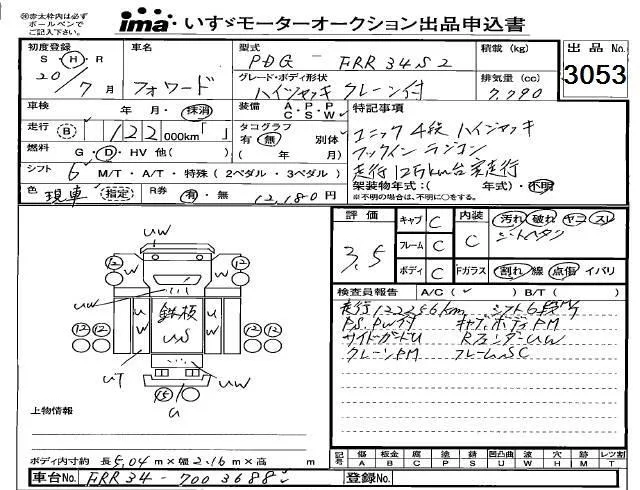 ㊟赤太枠内は必ず
ボールペンで
ご記入下さい。
ima いすゞモーターオークション出品申込書
初度登録
S・H・R
20/7月
車名
フォワード
型式
PDG-FRR34S2
積載(kg)
出品No.
3053
グレード・ボディ形状
ハイジャッキ クレーン付
排気量(cc)
7,790
車検
年・月・抹消
装備
A・P・P
C・S・W
特記事項
ユニック 4段 ハイジャッキ
フックイン ラジコン
走行12万km台実走行
走行
B
122,000km「 」
タコグラフ
有 無 別体
( 年 月)
燃料
G・D・HV 他( )
シフト
6 M/T・A/T・特殊(2ペダル・3ペダル)
架装物年式:( 年式)・不明
※不明の場合は、不明に○をする。
色
現車
指定
R券
有・無
12,180円
評価
3.5
キャブ C
フレーム C
ボディ C
内装
C
汚れ 破れ ヤニ スレ
シートヘタリ
Fガラス
割れ・線 点傷・イバリ
検査員報告
A/C( ) B/T( )
走行122256km シフト6段MT
P.S. PW付 キャブ.ボディPM
サイドガードU RフェンダーUW
クレーンPM フレームSC
UW
12
W
W
12
UW
UW
鉄板
US
UW
12 12
12 12
UT
UW
15
U
上物情報
ボディ内寸約 長 5.04 m×幅 2.16 m×高 m
車台No.
FRR34-7003688
登録No.
記号
傷 A
板金 B
腐 C
塗 P
錆 S
凹凸曲 U
波 W
穴 H
跡 M
レンズ割 T